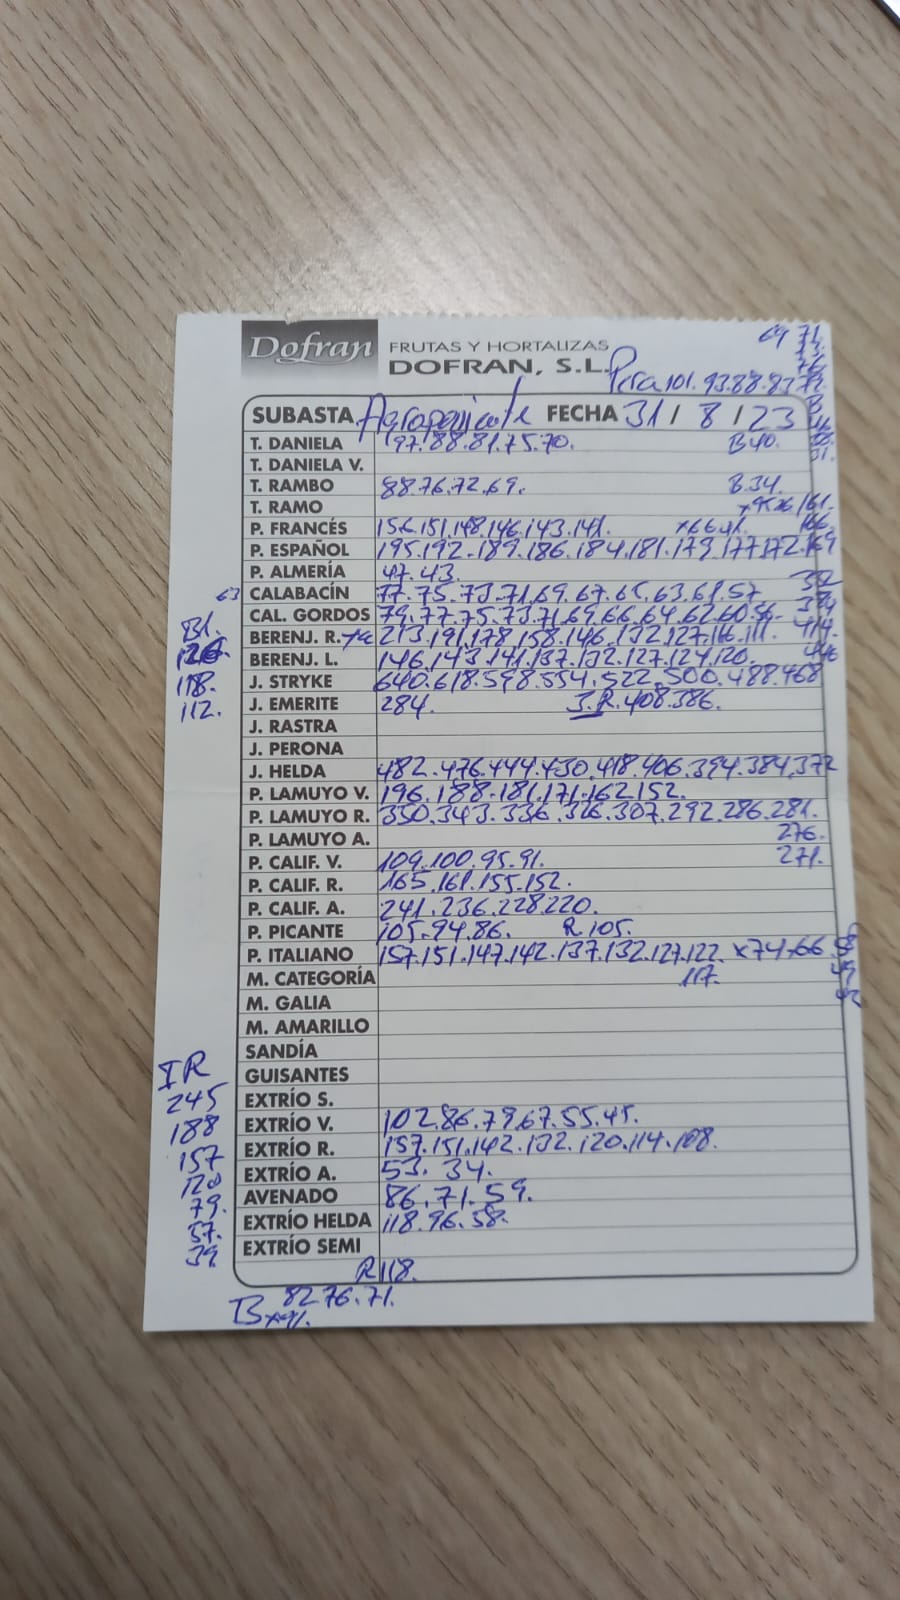 69 71.
73.
76.
Dofran FRUTAS Y HORTALIZAS
DOFRAN, S.L. Pera 101. 93.88.83 72.
B
SUBASTA Agroponiente FECHA 31 / 8 / 23
T. DANIELA 97.88.81.75.70. B40.
31.
T. DANIELA V.
T. RAMBO 88.76.72.69. B.34.
T. RAMO 161.
P. FRANCÉS 156.151.148.146.143.141. x66 166.
P. ESPAÑOL 195.192.189.186.184.181.179.177.172.169
P. ALMERÍA 47.43.
63 CALABACÍN 77.75.73.71.69.67.65.63.61.57.
CAL. GORDOS 79.77.75.73.71.69.66.64.62.60.56.
B1. BERENJ. R. 213.191.178.158.146.132.127.116.111. 414.
126. BERENJ. L. 146.143.141.137.132.127.124.120. 446
118. J. STRYKE 640.618.598.554.522.500.488.468
112. J. EMERITE 284. J.R. 408.386.
J. RASTRA
J. PERONA
J. HELDA 482.476.444.430.418.406.394.384.372
P. LAMUYO V. 196.188.181.171.162.152.
P. LAMUYO R. 350.343.336.326.307.292.286.281.
P. LAMUYO A. 276.
P. CALIF. V. 109.100.95.91. 271.
P. CALIF. R. 165.161.155.152.
P. CALIF. A. 241.236.228.220.
P. PICANTE 105.94.86. R 105.
P. ITALIANO 157.151.147.142.137.132.127.122. x74.66
M. CATEGORÍA 117.
M. GALIA
M. AMARILLO
SANDÍA
IR GUISANTES
245 EXTRÍO S.
188 EXTRÍO V. 102.86.79.67.55.45.
157 EXTRÍO R. 157.151.142.132.120.114.108.
120 EXTRÍO A. 53.34.
79. AVENADO 86.71.59.
57. EXTRÍO HELDA 118.96.58.
39 EXTRÍO SEMI
R118.
B 82.76.71.